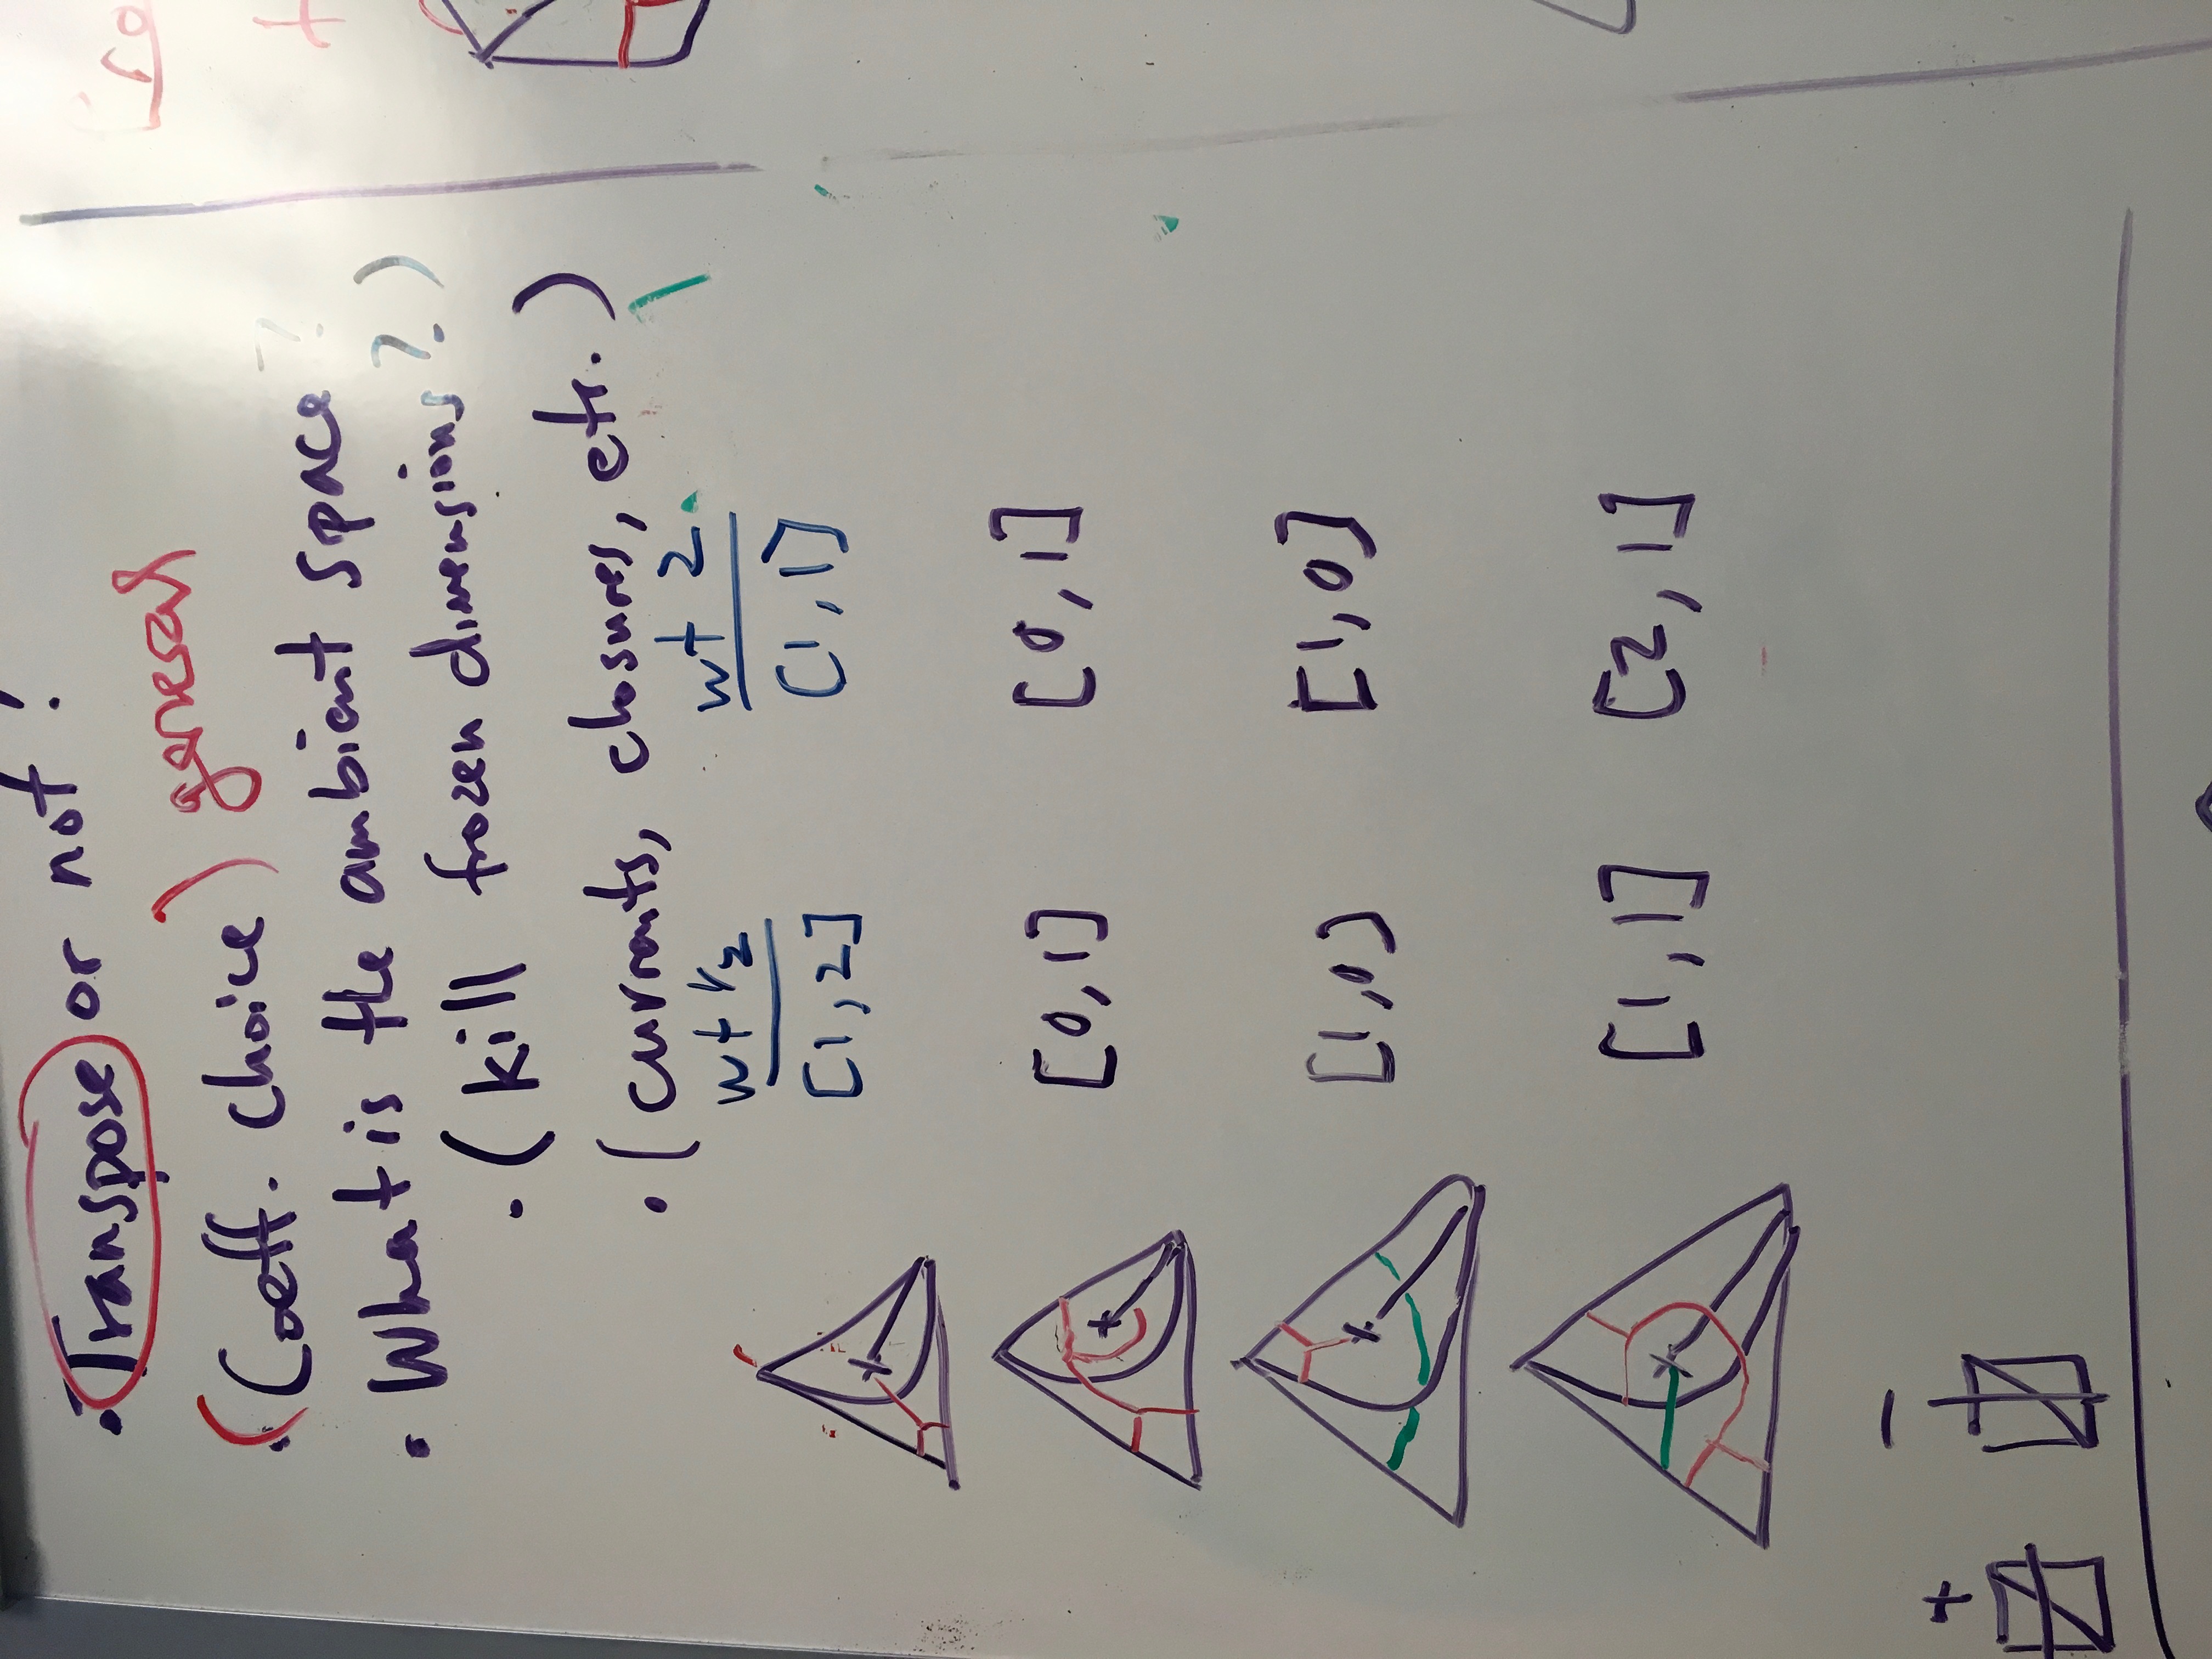 • Transpose or not?
• (Coeff. choice) general
• What is the ambient space?
• (kill frozen dimensions?)
• (currents, closures, etc.)
wt 1/2 wt 2
[1,2] [1,1]
[0,1] [0,1]
[1,0] [1,0]
[1,1] [2,1]
+ −